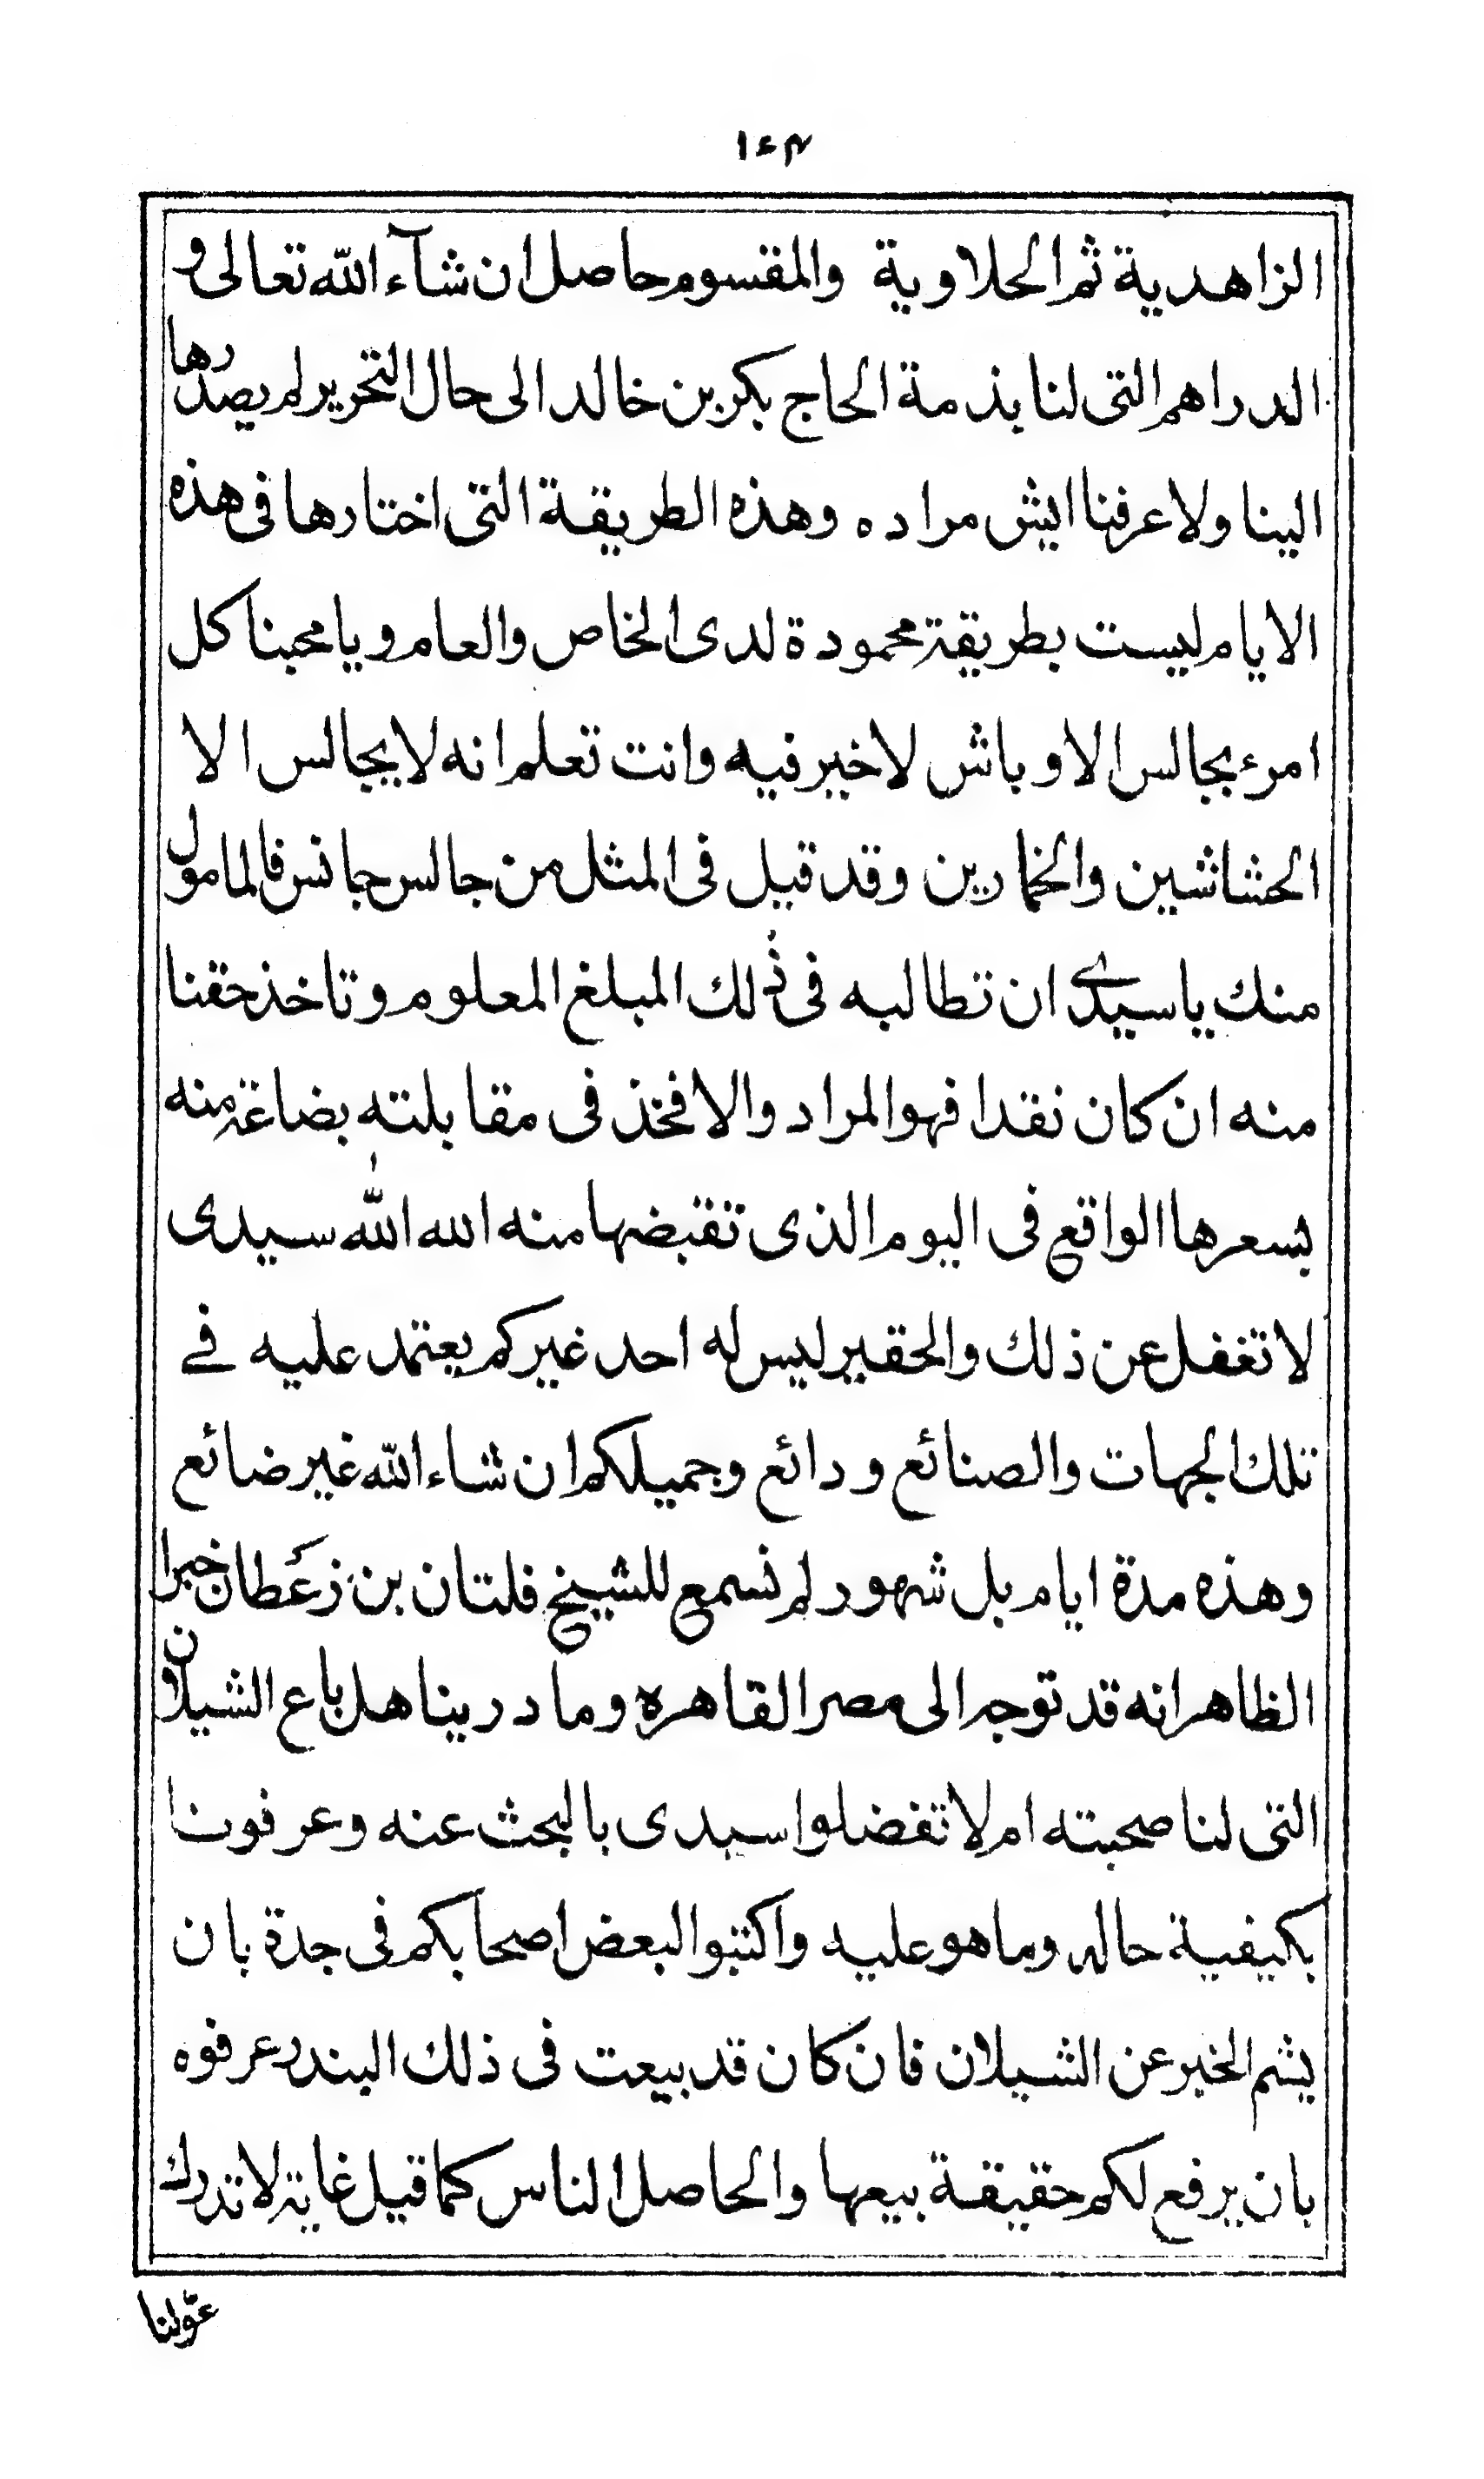 ١٤٣
الزاهدية ثم الحلاوية والمقسوم حاصل ان شآء الله تعالى و
الدراهم التى لنا بذمة الحاج بكر بن خالد الى حال التحرير لم يصدرها
الينا ولا عرفنا ايش مراده وهذه الطريقة التى اختارها فى هذه
الايام ليست بطريقة محمودة لدى الخاص والعام ويا محبنا كل
امرء يجالس الاوباش لا خير فيه وانت تعلم انه لا يجالس الا
الحشاشين والخمارين وقد قيل فى المثل من جالس جانس فالمامول
منك يا سيدي ان تطالبه فى ذلك المبلغ المعلوم وتاخذ حقنا
منه ان كان نقدا فهو المراد والا فخذ فى مقابلته بضاعة منه
بسعرها الواقع فى اليوم الذى تقبضها منه الله الله سيدى
لا تغفل عن ذلك والحقير ليس له احد غيركم يعتمد عليه في
تلك الجهات والصنائع ودائع وجميلكم ان شاء الله غير ضائع
وهذه مدة ايام بل شهور لم نسمع للشيخ فلتان بن زعَطان خبرا
الظاهر انه قد توجه الى مصر القاهره وما درينا هل باع الشيلان
التى لنا صحبته ام لا تفضلوا سيدى بالبحث عنه وعرفونا
بكيفية حاله وما هو عليه واكتبوا لبعض اصحابكم فى جدة بان
يشم الخبر عن الشيلان فان كان قد بيعت فى ذلك البندر عرفوه
بان يرفع لكم حقيقة بيعها والحاصل الناس كما قيل غاية لا تدرك
عوّلنا